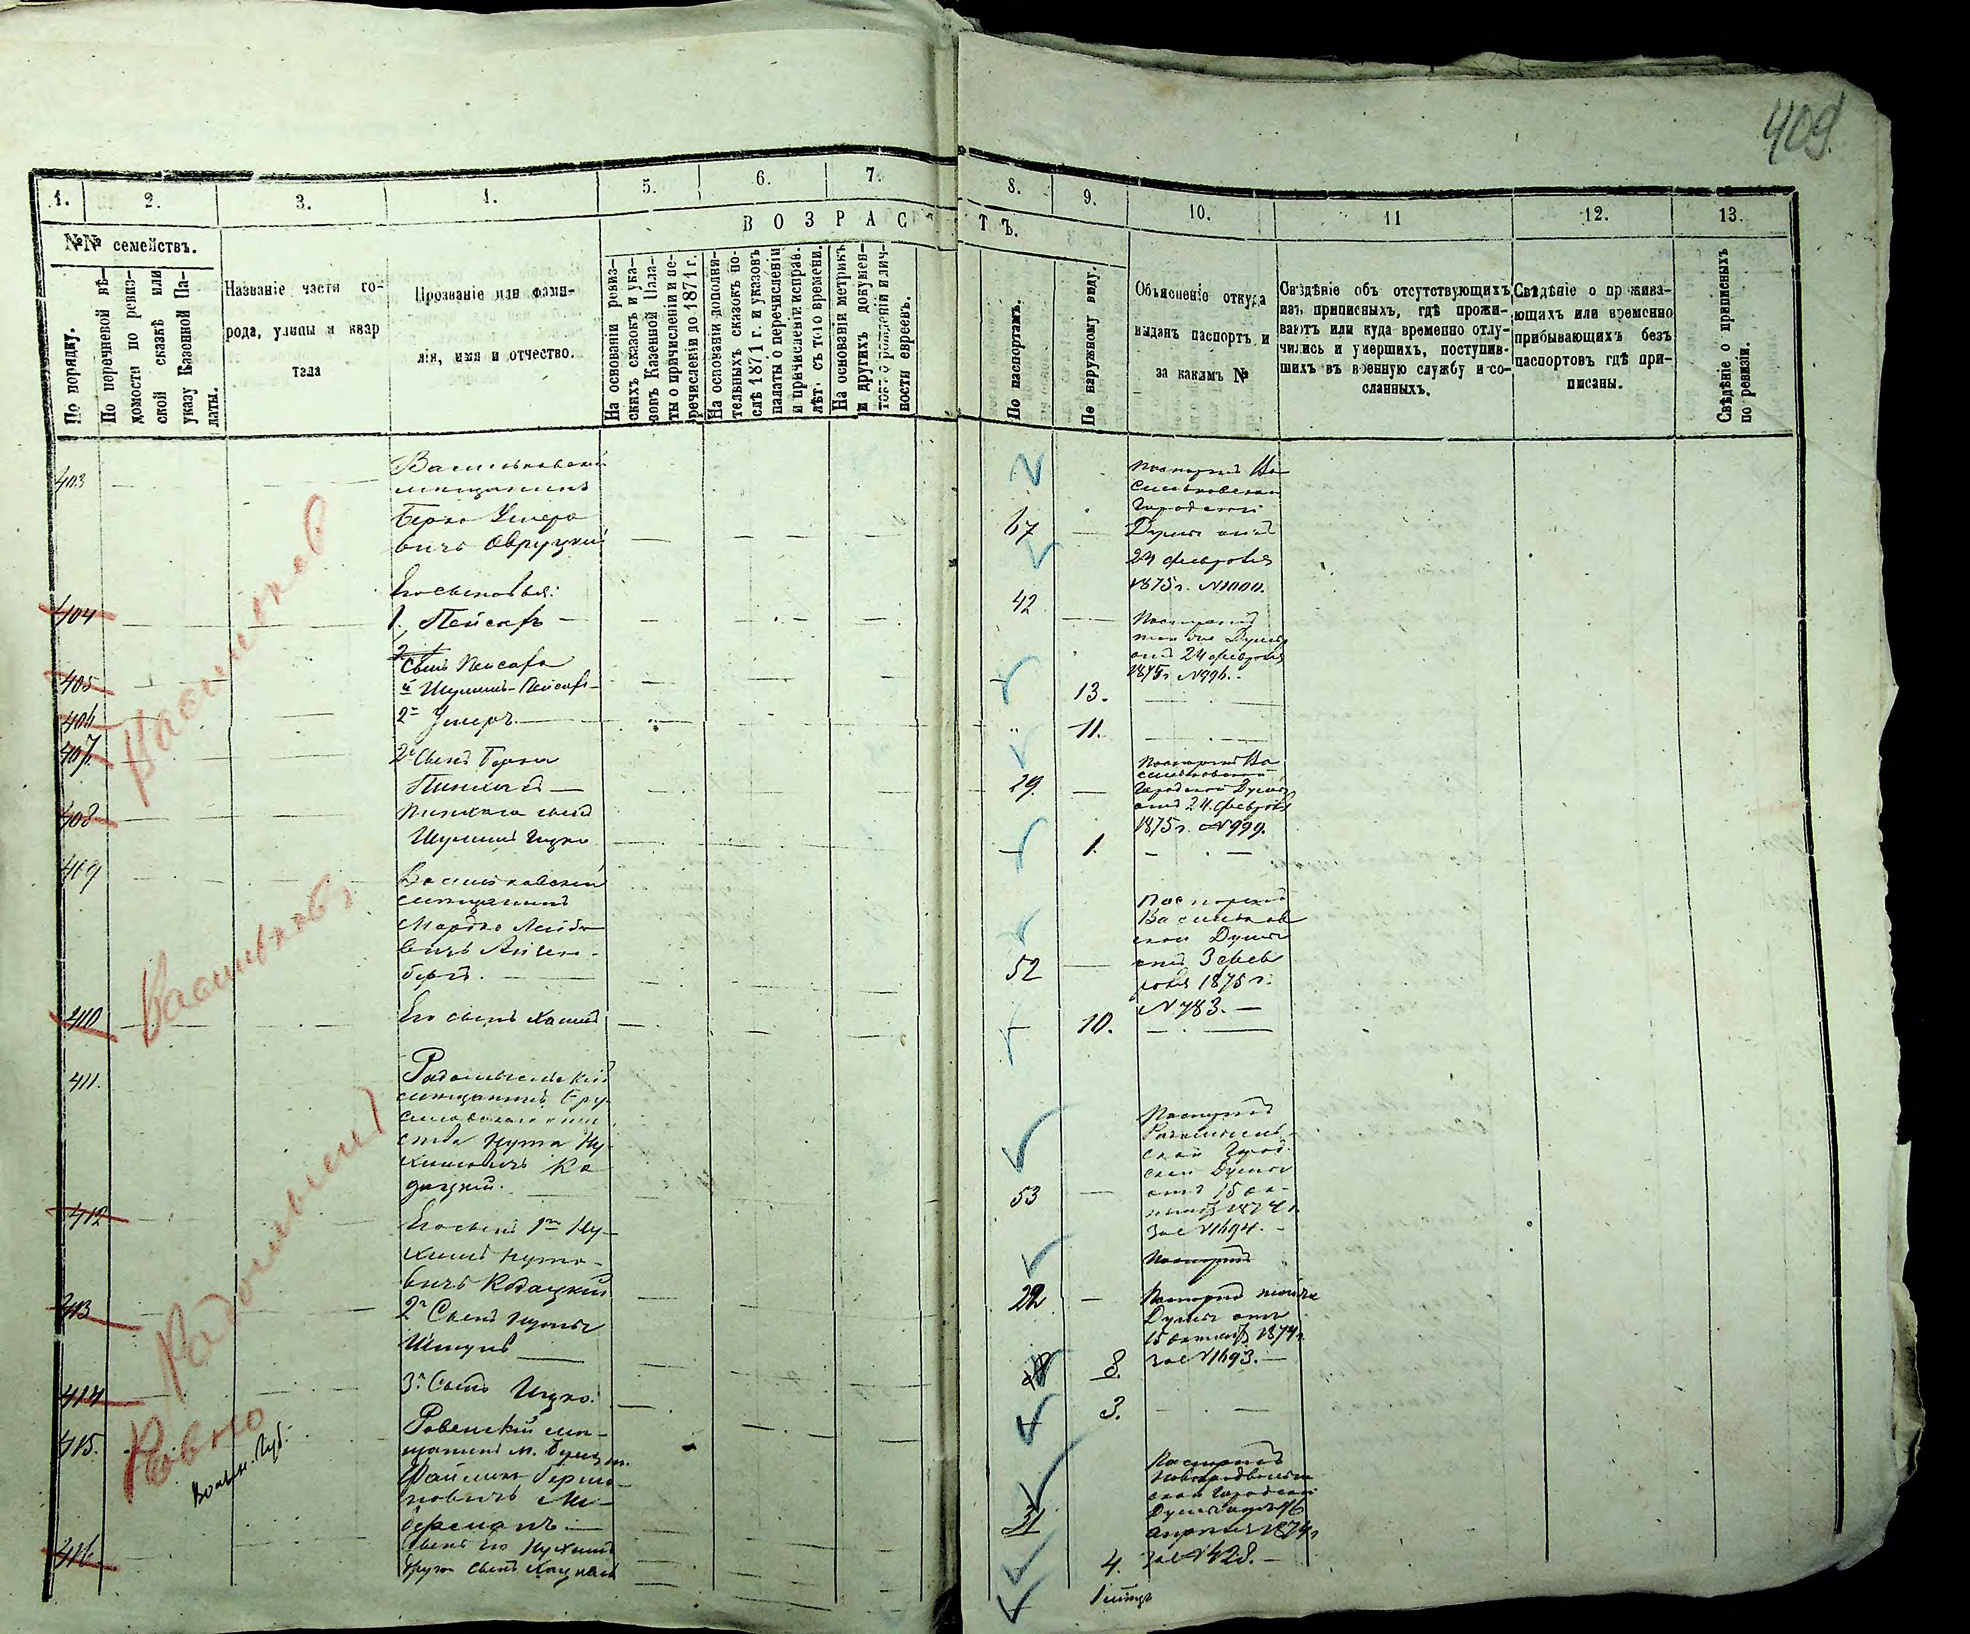 409
1. 2. 3. 4. 5. 6. 7. 8. 9. 10. 11 12. 13.
ВОЗРАСТЪ.
№№ семействъ.
По порядку.
По перечневой вѣ-
домости по ревиз-
ской сказкѣ или
указу Казенной Па-
латы.
Названіе части го-
рода, улицы и квар
тала
Прозваніе или фами-
лія, имя и отчество.
На основаніи ревиз-
скихъ сказокъ и ука-
зовъ Казенной Пала-
ты о причисленіи и пе-
речисленіи до 1871 г.
На основаніи дополни-
тельныхъ сказокъ по-
слѣ 1871 г. и указовъ
палаты о перечисленіи
и причисленіи исправ.
лѣтъ съ того времени.
На основаніи метрикъ
и другихъ докумен-
товъ о рожденіи и лич-
ности евреевъ.
По паспортамъ.
По наружному виду.
Объясненіе откуда
выданъ паспортъ и
за какимъ №
Свѣдѣніе объ отсутствующихъ
изъ приписныхъ, гдѣ прожи-
ваютъ или куда временно отлу-
чились и умершихъ, поступив-
шихъ въ военную службу и со-
сланныхъ.
Свѣдѣніе о прожива-
ющихъ или временно
прибывающихъ безъ
паспортовъ гдѣ при-
писаны.
Свѣдѣніе о приписныхъ
по ревизіи.
Васильков
403
Васильковскій
мещанинъ
Берко Умеро
вичъ Овруцкій
67
Паспортъ Ва
сильковской
Городской
Думы отъ
24 февраля
1875 г. №1000.
404
Его сыновья:
1. Пейсахъ
42
Паспортъ
той же Думы
отъ 24 февраля
1875 г №996.
405
Сынъ Пейсаха
Шулимъ-Пейсах
13.
406
2й Умеръ
11.
407.
2й Сынъ Берка
Пинхасъ
29.
Паспортъ Ва
сильковской
Городской Думы
отъ 24 февраля
1875 г. №999.
408
Пинхаса сынъ
Шулимъ Ицко
1.
Васильковъ
409
Васильковскій
мещанинъ
Мордко Лейбо
вичъ
бергъ.
52
Паспортъ
Васильков
ской Думы
отъ 3 фев
раля 1875 г.
№783.
410
Его сынъ Хаимъ
10.
Радомысль
411.
Радомысльскій
мещанинъ Бру
силовскаго
ства Нута Ну-
химовичъ Ко
дацкій.
53
Паспортъ
Радомысль-
ской Город-
ской Думы
отъ 15 ок-
тября 1874 г.
за №1694.
412
Его сынъ 1й Ну-
химъ Нуто-
вичъ Кодацкій
22
Паспортъ
Паспортъ той же
Думы отъ
15 октября 1874 г.
за №1693.
413
2й Сынъ Нуты
Шмуль
8.
414
3й Сынъ Ицко.
3.
Ровно
Волын. Губ.
415.
Ровенскій ме-
щанинъ м.
Файвишъ Берко-
новичъ Ли-
берманъ
31
Паспортъ
Новоградволын
ской Городской
Думы отъ 16
апреля 1874 г
за №428.
416
Сынъ его Нухимъ
4.
Другой сынъ
1 мѣсяцъ